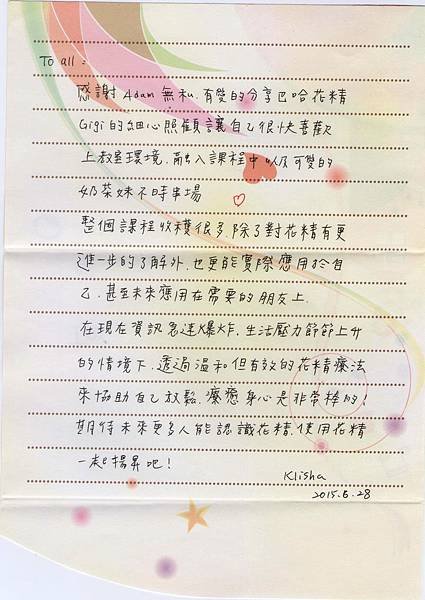 To all:
感謝 Adam 無私.有愛的分享巴哈花精
Gigi 的細心照顧讓自己很快喜歡
上教室環境.融入課程中以及可愛的
奶茶妹不時串場
整個課程收穫很多.除了對花精有更
進一步的了解外.也更能實際應用於自
己.甚至未來應用在需要的朋友上.
在現在資訊急速爆炸.生活壓力節節上升
的情境下.透過溫和但有效的花精療法
來協助自己放鬆.療癒身心是非常棒的!
期待未來更多人能認識花精.使用花精
一起揚昇吧!
Klisha
2015.5.28